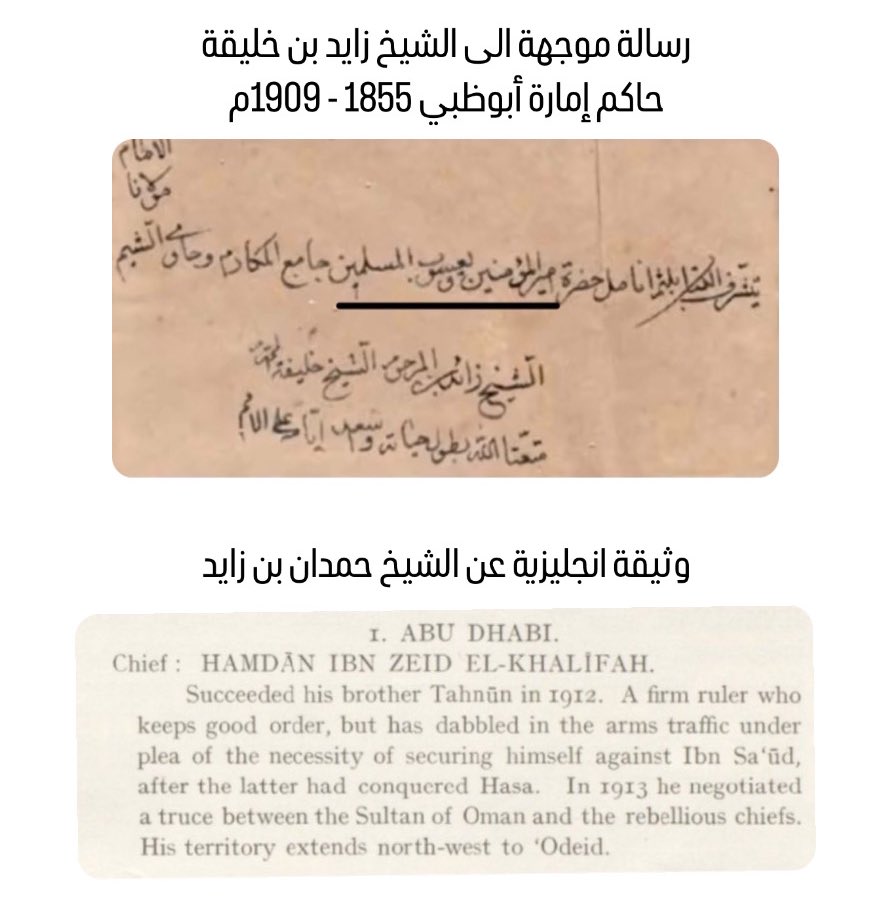 رسالة موجهة الى الشيخ زايد بن خليقة
حاكم إمارة أبوظبي 1855 - 1909م
الامام
مولانا
يتشرف الكتاب بلثم انامل حضرة امير المؤمنين ويعسوب المسلمين جامع المكارم وحاوي الشيم
الشيخ زائد بن المرحوم الشيخ خليفة المحترم
متعنا الله بطول حياته على الامم
وثيقة انجليزية عن الشيخ حمدان بن زايد
1. ABU DHABI.
Chief : HAMDĀN IBN ZEID EL-KHALÎFAH.
Succeeded his brother Tahnūn in 1912. A firm ruler who
keeps good order, but has dabbled in the arms traffic under
plea of the necessity of securing himself against Ibn Sa‘ūd,
after the latter had conquered Hasa. In 1913 he negotiated
a truce between the Sultan of Oman and the rebellious chiefs.
His territory extends north-west to ‘Odeid.